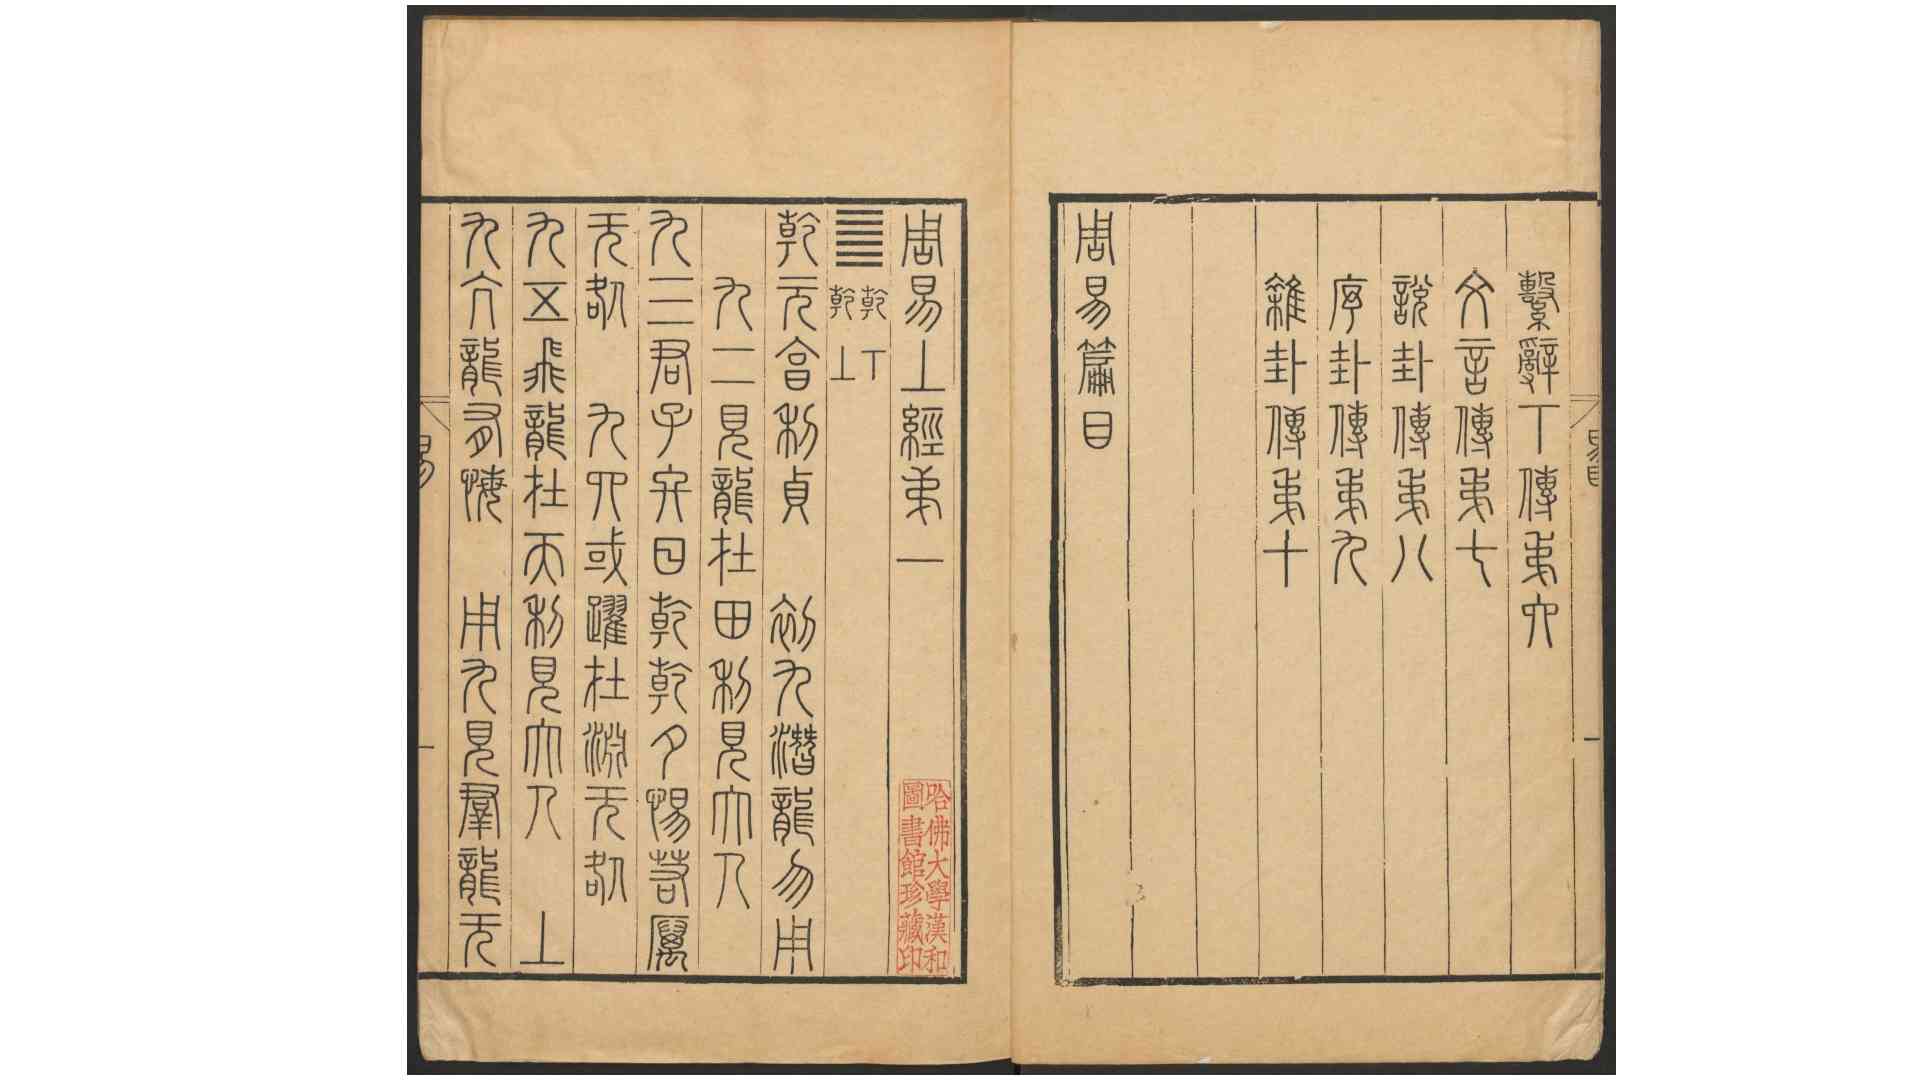 易目
一
繫辭下傳弟六
文言傳弟七
說卦傳弟八
序卦傳弟九
雜卦傳弟十
周易篇目
周易上經弟一
哈佛大學漢和
圖書館珍藏印
乾下
乾上
乾元亨利貞 初九潛龍勿用
九二見龍在田利見大人
九三君子終日乾乾夕惕若厲
无咎 九四或躍在淵无咎
九五飛龍在天利見大人 上
九亢龍有悔 用九見羣龍无
易
一